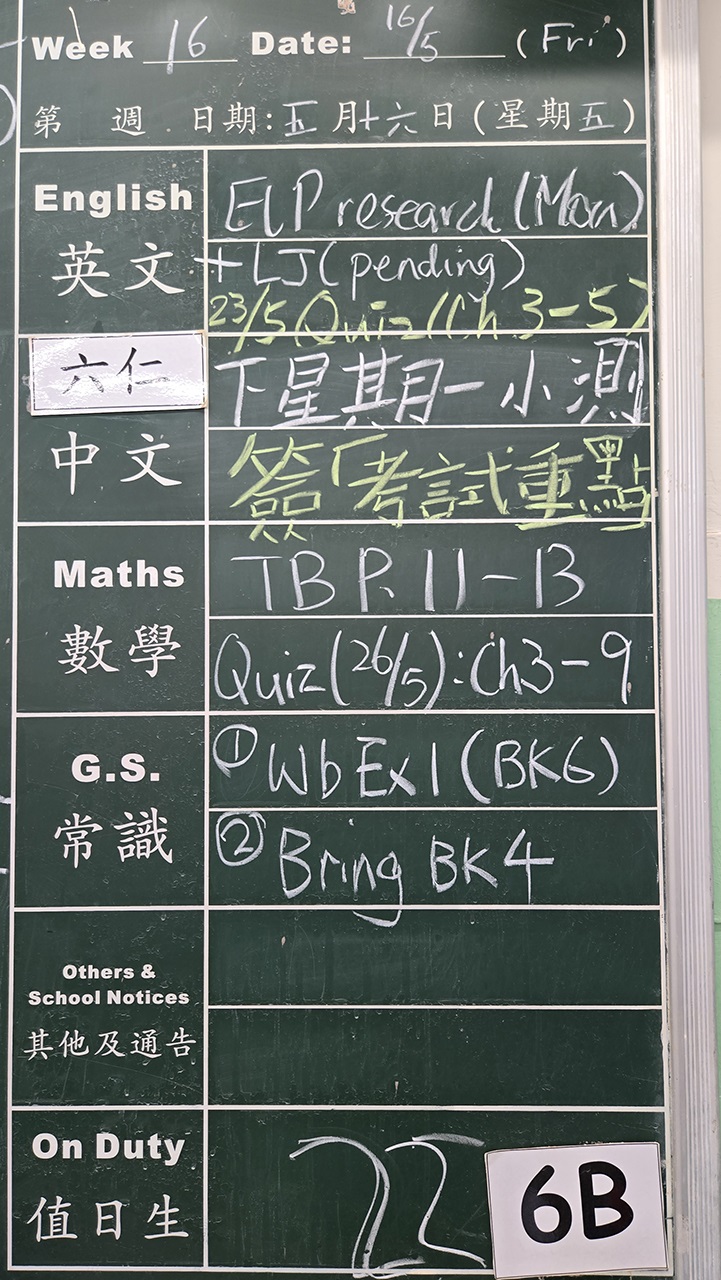 Week 16 Date: 16/5 (Fri)
第 週 日期:五月十六日(星期五)
English
英文
ELP research (Mon)
+ LJ (pending)
23/5 Quiz (Ch 3-5)
六仁
中文
下星期一小測
簽「考試重點
Maths
數學
TB P. 11-13
Quiz (26/5): Ch3-9
G.S.
常識
① Wb Ex1 (BK6)
② Bring BK4
Others &
School Notices
其他及通告
On Duty
值日生
22
6B